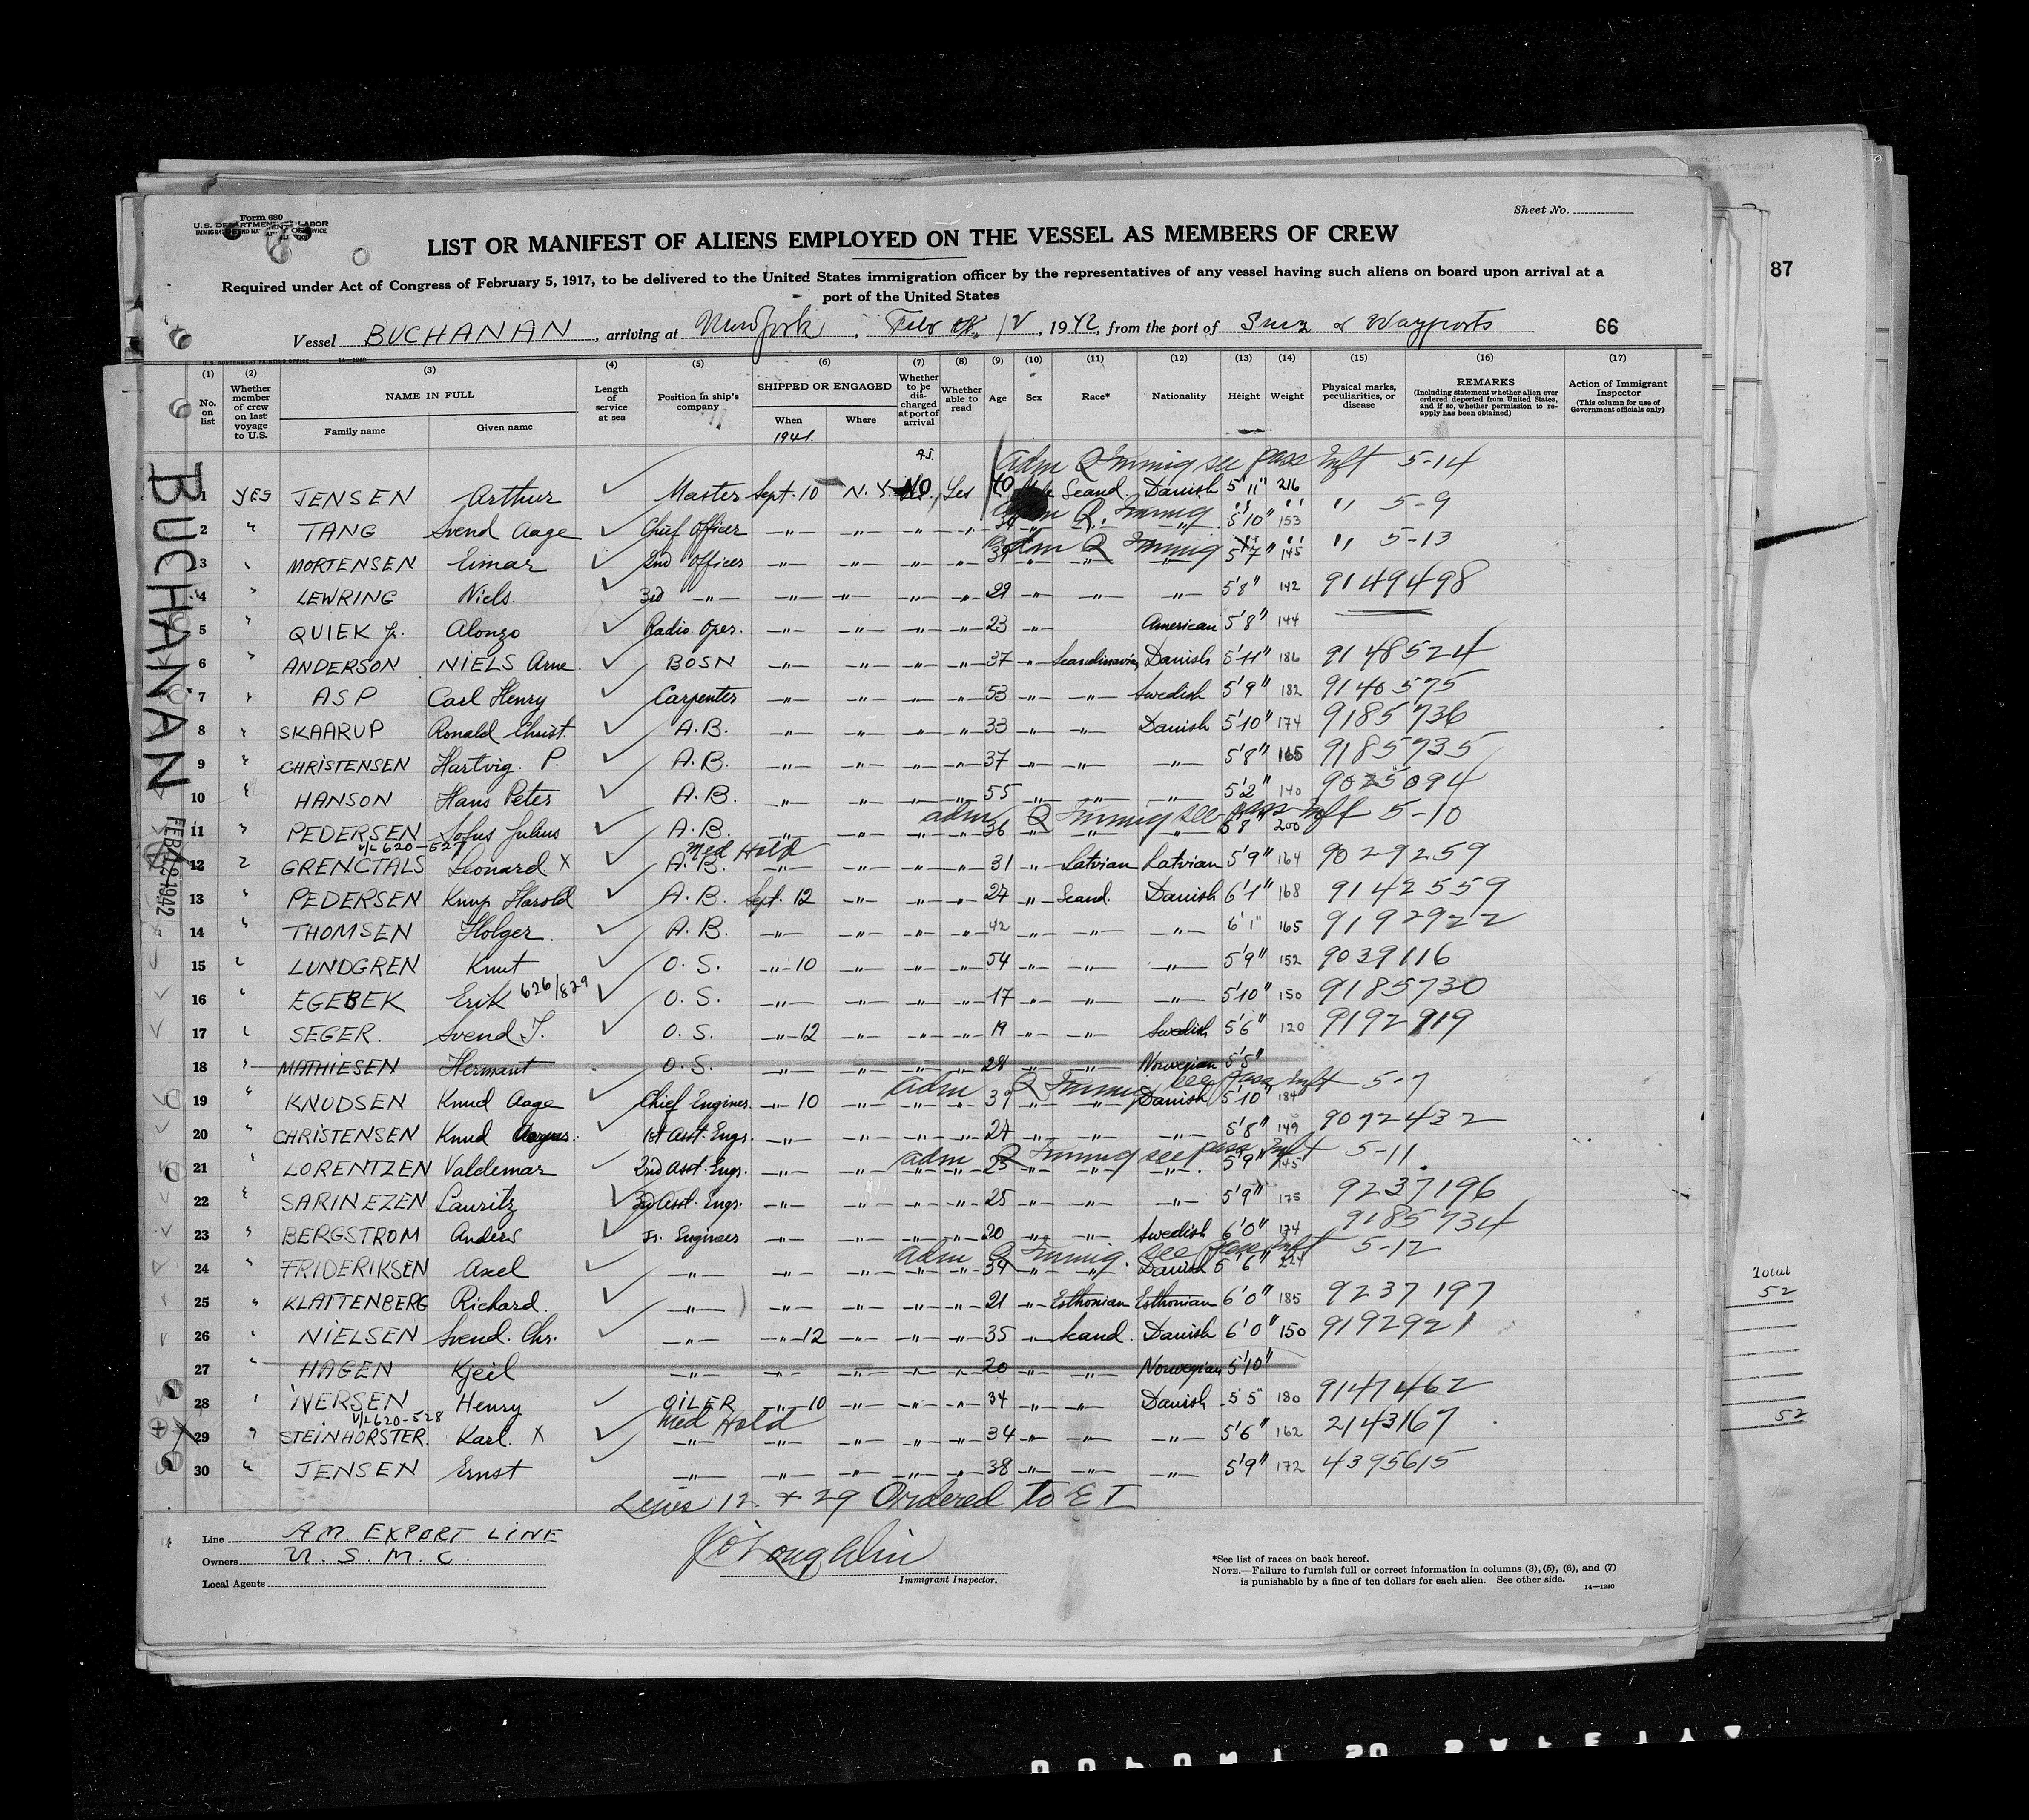 Form 680
U.S. DEPARTMENT OF LABOR
Sheet No.
LIST OR MANIFEST OF ALIENS EMPLOYED ON THE VESSEL AS MEMBERS OF CREW
Required under Act of Congress of February 5, 1917, to be delivered to the United States immigration officer by the representatives of any vessel having such aliens on board upon arrival at a
port of the United States
87
Vessel BUCHANAN, arriving at New York, Feb 12, 1942, from the port of Suez & Wayports 66
U.S. GOVERNMENT PRINTING OFFICE 14—1240
(1) (2) (3) (4) (5) (6) (7) (8) (9) (10) (11) (12) (13) (14) (15) (16) (17)
No. on list
Whether member of crew on last voyage to U.S.
NAME IN FULL
Family name Given name
Length of service at sea
Position in ship's company
SHIPPED OR ENGAGED
When Where
1941
Whether to be discharged at port of arrival
Whether able to read
Age Sex Race* Nationality Height Weight
Physical marks, peculiarities, or disease
REMARKS
(Including statement whether alien ever ordered deported from United States, and if so, whether permission to reapply has been obtained)
Action of Immigrant Inspector
(This column for use of Government officials only)
BUCHANAN
FEB 12 1942
adm Q Immig see pass mft 5-14
1 YES JENSEN Arthur ✓ Master Sept. 10 N.Y. No Yes 40 Scand. Danish 5'11" 216
adm Q. Immig " " " 5-9
2 " TANG Svend Aage ✓ Chief Officer —"— —"— —"— —"— 34 —"— —"— 5'10" 153
adm Q Immig " " " 5-13
3 " MORTENSEN Einar ✓ 2nd Officer —"— —"— —"— —"— —"— —"— —"— 5'7" 145
4 " LEWRING Niels ✓ 3rd —"— —"— —"— —"— —"— 29 —"— —"— —"— 5'8" 142 9149498
5 " QUIEK Jr. Alonzo Radio Oper. —"— —"— —"— —"— 23 —"— American 5'8" 144
6 " ANDERSON NIELS Arne ✓ BOSN —"— —"— —"— —"— 37 —"— Scandinavian Danish 5'11" 186 9148524
7 " ASP Carl Henry ✓ Carpenter —"— —"— —"— —"— 53 —"— —"— Swedish 5'9" 182 9140575
8 " SKAARUP Ronald Christ. ✓ A.B. —"— —"— —"— —"— 33 —"— —"— Danish 5'10" 174 9185736
9 " CHRISTENSEN Hartvig. P. ✓ A.B. —"— —"— —"— —"— 37 —"— —"— —"— 5'8" 165 9185735
10 " HANSON Hans Peter ✓ A.B. —"— —"— —"— —"— 55 —"— —"— —"— 5'2" 140 9025094
adm Q Immig see pass mft 5-10
11 " PEDERSEN Sofus Julius ✓ A.B. —"— —"— —"— —"— 36 —"— —"— —"— 5'8" 200
V/L 620-527 Med Hold
12 " GRENCTALS Leonard X ✓ A.B. —"— —"— —"— —"— 31 —"— Latvian Latvian 5'9" 164 9029259
13 " PEDERSEN Knup Harold ✓ A.B. Sept. 12 —"— —"— —"— 27 —"— Scand. Danish 6'1" 168 9142559
14 " THOMSEN Holger. ✓ A.B. —"— —"— —"— —"— 42 —"— —"— —"— 6'1" 165 9192922
15 " LUNDGREN Knut ✓ O.S. —"—10 —"— —"— —"— 54 —"— —"— —"— 5'9" 152 9039116
16 " EGEBEK Erik 626/829 ✓ O.S. —"— —"— —"— —"— 17 —"— —"— —"— 5'10" 150 9185730
17 " SEGER. Svend J. ✓ O.S. —"—12 —"— —"— —"— 19 —"— —"— Swedish 5'6" 120 9192919
18 " MATHIESEN Hermant O.S. —"— —"— —"— —"— 28 —"— —"— Norwegian 5'5"
adm Q Immig see pass mft 5-7
19 " KNUDSEN Knud Aage ✓ Chief Engineer —"—10 —"— —"— —"— 39 —"— —"— Danish 5'10" 184
20 " CHRISTENSEN Knud ✓ 1st Asst. Engr. —"— —"— —"— —"— 27 —"— —"— —"— 5'8" 149 9072432
adm Q Immig see pass mft 5-11
21 " LORENTZEN Valdemar ✓ 2nd Asst. Engr. —"— —"— —"— —"— 25 —"— —"— —"— 5'9" 145
22 " SARINEZEN Lauritz ✓ 3rd Asst. Engr. —"— —"— —"— —"— 25 —"— —"— —"— 5'9" 175 9237196
23 " BERGSTROM Anders ✓ Jr. Engineer —"— —"— —"— —"— 20 —"— —"— Swedish 6'0" 174 9185734
adm Q Immig. see pass mft 5-12
24 " FRIDERIKSEN Axel ✓ —"— —"— —"— —"— —"— 39 —"— —"— Danish 5'6" 224
25 " KLATTENBERG Richard. ✓ —"— —"— —"— —"— —"— 21 —"— Esthonian Esthonian 6'0" 185 9237197
26 " NIELSEN Svend. Chr. ✓ —"— —"—12 —"— —"— —"— 35 —"— Scand. Danish 6'0" 150 9192921
27 " HAGEN Kjeil —"— —"— —"— —"— —"— 20 —"— —"— Norwegian 5'10"
28 " IVERSEN Henry ✓ OILER —"—10 —"— —"— —"— 34 —"— —"— Danish 5'5" 180 9147462
V/L 620-528 Med Hold
29 " STEINHORSTER. Karl. X ✓ —"— —"— —"— —"— —"— 34 —"— —"— —"— 5'6" 162 2143167
30 " JENSEN Ernst ✓ —"— —"— —"— —"— —"— 38 —"— —"— —"— 5'9" 172 4395615
Total
52
52
Lines 12 + 29 Ordered to E I
Line AM. EXPORT LINE
Owners U.S.M.C.
Local Agents
J O'Loughlin
Immigrant Inspector.
*See list of races on back hereof.
NOTE.—Failure to furnish full or correct information in columns (3), (5), (6), and (7)
is punishable by a fine of ten dollars for each alien. See other side. 14—1240